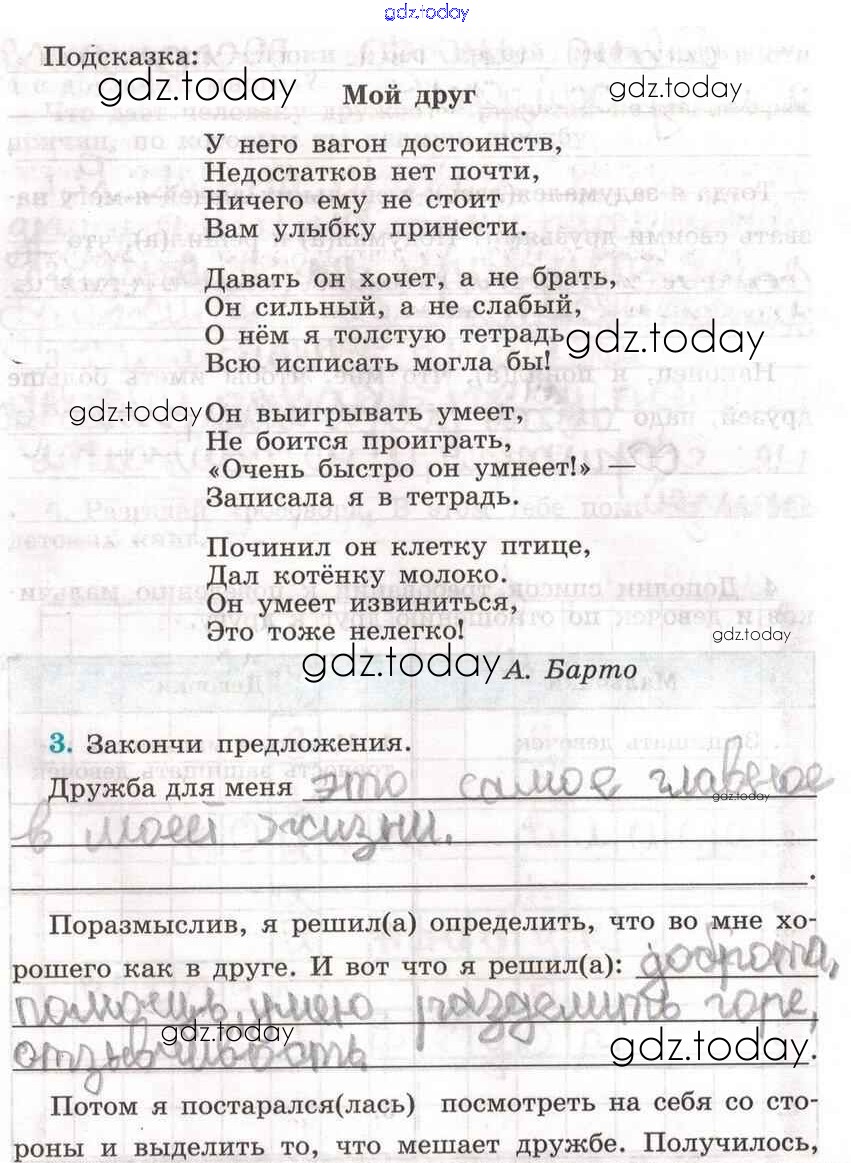 gdz.today
Подсказка:
gdz.today
gdz.today
Мой друг
У него вагон достоинств,
Недостатков нет почти,
Ничего ему не стоит
Вам улыбку принести.
Давать он хочет, а не брать,
Он сильный, а не слабый,
О нём я толстую тетрадь
gdz.today
Всю исписать могла бы!
gdz.today
Он выигрывать умеет,
Не боится проиграть,
«Очень быстро он умнеет!» —
Записала я в тетрадь.
Починил он клетку птице,
Дал котёнку молоко.
Он умеет извиниться,
Это тоже нелегко!
gdz.today
gdz.today
А. Барто
3. Закончи предложения.
Дружба для меня это самое главное
gdz.today
в моей жизни.
Поразмыслив, я решил(а) определить, что во мне хо-
рошего как в друге. И вот что я решил(а): доброта,
помощь, умею разделить горе,
gdz.today
gdz.today
Потом я постарался(лась) посмотреть на себя со сто-
роны и выделить то, что мешает дружбе. Получилось,